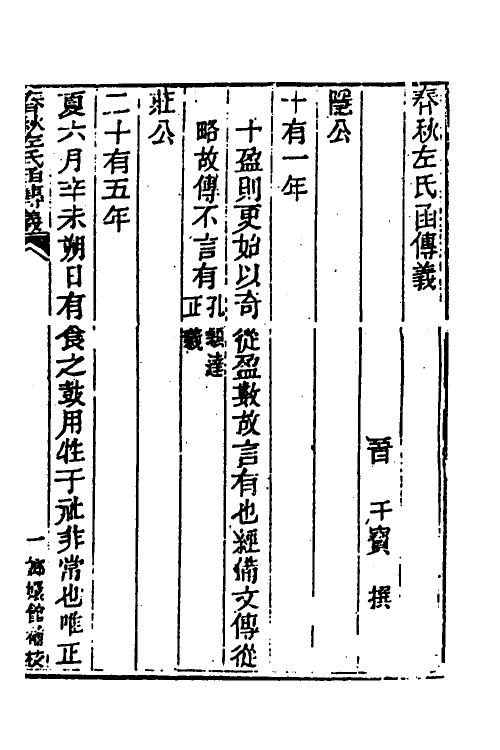 春秋左氏函傳義
晉 干寶 撰
隱公
十有一年
十盈則更始以奇從盈數故言有也經備文傳從
略故傳不言有孔穎達正義
莊公
二十有五年
夏六月辛未朔日有食之鼓用牲于社非常也唯正
春秋左氏函傳義 一 嫏嬛館補校